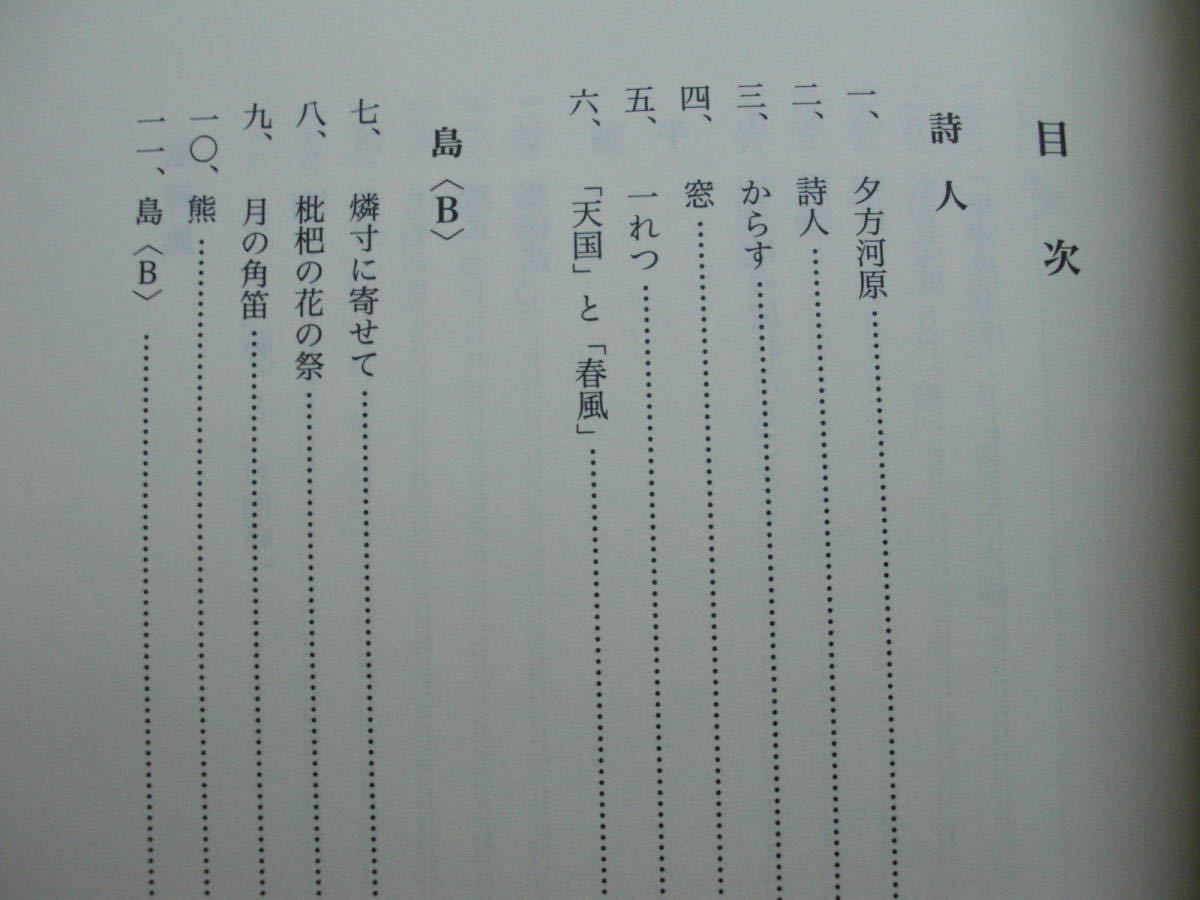 目次
詩人
一、夕方河原……………………
二、詩人……………………
三、からす……………………
四、窓……………………
五、一れつ……………………
六、「天国」と「春風」……………………
島〈B〉
七、燐寸に寄せて……………………
八、枇杷の花の祭……………………
九、月の角笛……………………
一〇、熊……………………
一一、島〈B〉……………………